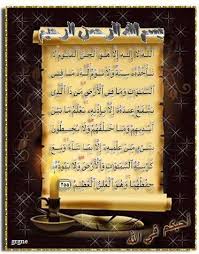 بسم الله الرحمن الرحيم
ٱللَّهُ لَآ إِلَٰهَ إِلَّا هُوَ ٱلْحَىُّ ٱلْقَيُّومُ لَا
تَأْخُذُهُۥ سِنَةٌ وَلَا نَوْمٌ لَّهُۥ مَا فِى
ٱلسَّمَٰوَٰتِ وَمَا فِى ٱلْأَرْضِ مَن ذَا ٱلَّذِى
يَشْفَعُ عِندَهُۥٓ إِلَّا بِإِذْنِهِۦ يَعْلَمُ مَا بَيْنَ
أَيْدِيهِمْ وَمَا خَلْفَهُمْ وَلَا يُحِيطُونَ
بِشَىْءٍ مِّنْ عِلْمِهِۦٓ إِلَّا بِمَا شَآءَ وَسِعَ
كُرْسِيُّهُ ٱلسَّمَٰوَٰتِ وَٱلْأَرْضَ وَلَا يَـُٔودُهُۥ
حِفْظُهُمَا وَهُوَ ٱلْعَلِىُّ ٱلْعَظِيمُ ٢٥٥
أحبكم في الله
grgne